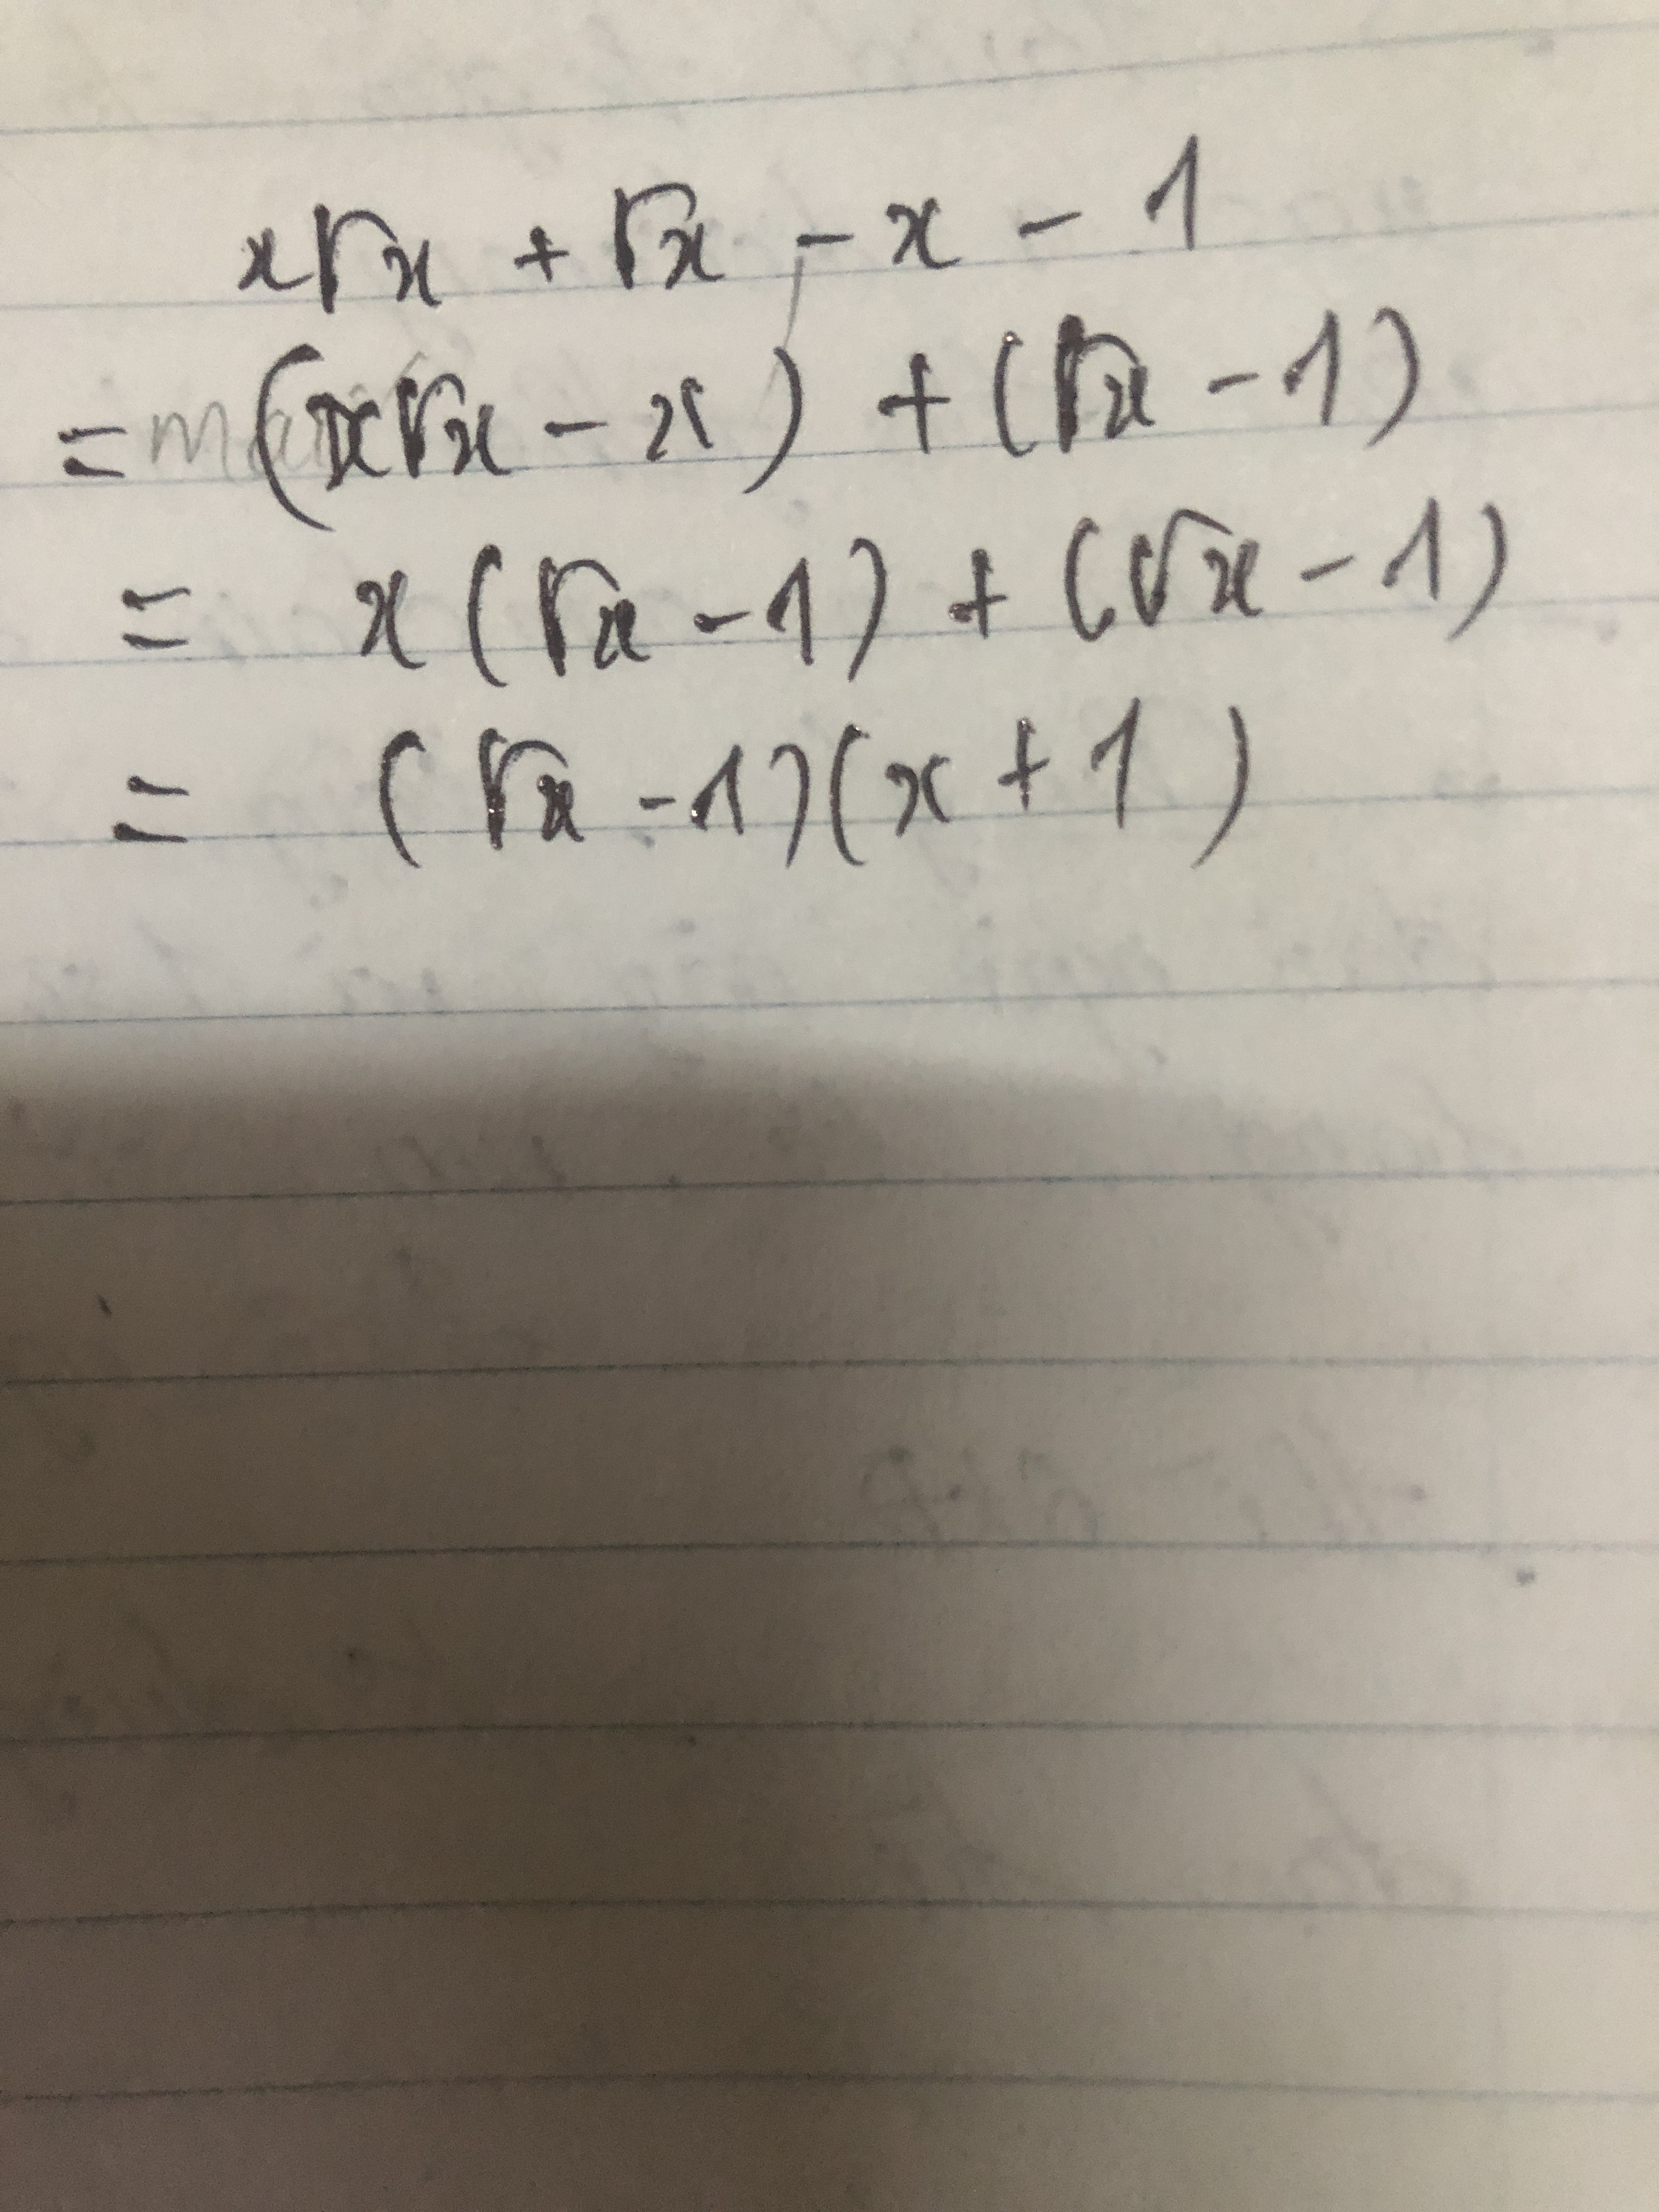 x√x + √x - x - 1
= (x√x - x) + (√x - 1)
= x(√x - 1) + (√x - 1)
= (√x - 1)(x + 1)